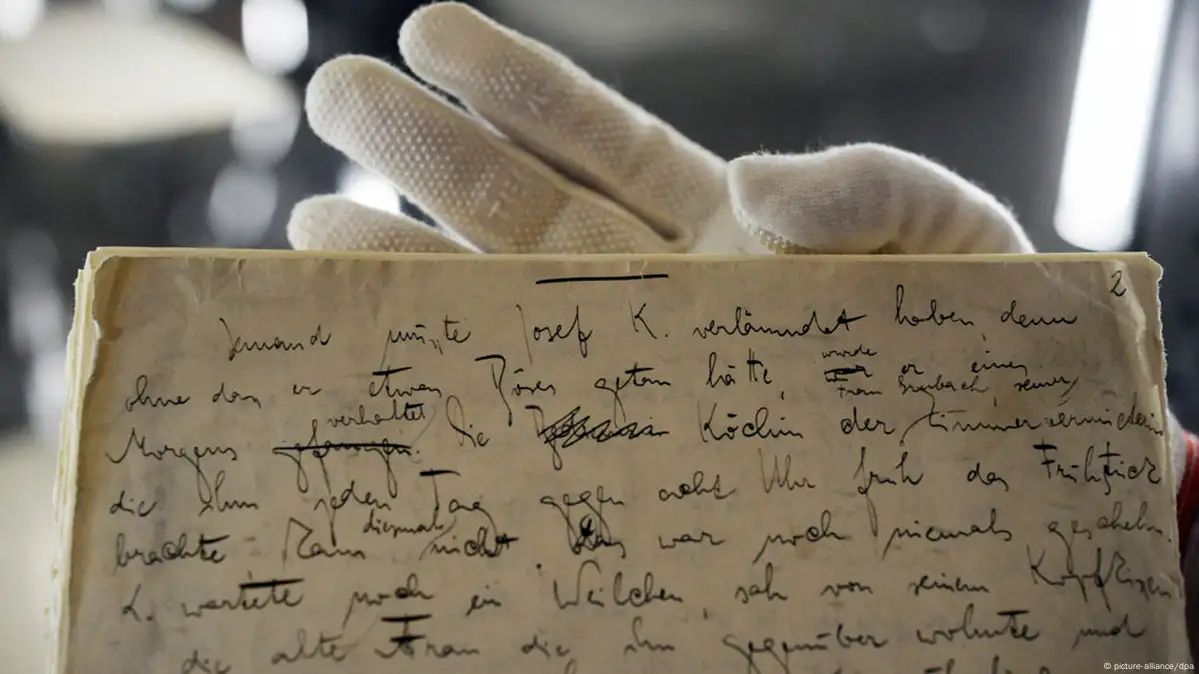 2
Jemand mußte Josef K. verläumdet haben, denn
ohne daß er etwas Böses getan hätte, wurde er eines
Frau Grubach, seiner
Morgens gefangen verhaftet. Die Köchin der Zimmervermieterin
die ihm jeden Tag gegen acht Uhr früh das Frühstück
brachte kam diesmal nicht. Das war noch niemals geschehn.
K. wartete noch ein Weilchen, sah von seinem Kopfkissen
die alte Frau die ihm gegenüber wohnte und
© picture-alliance/dpa